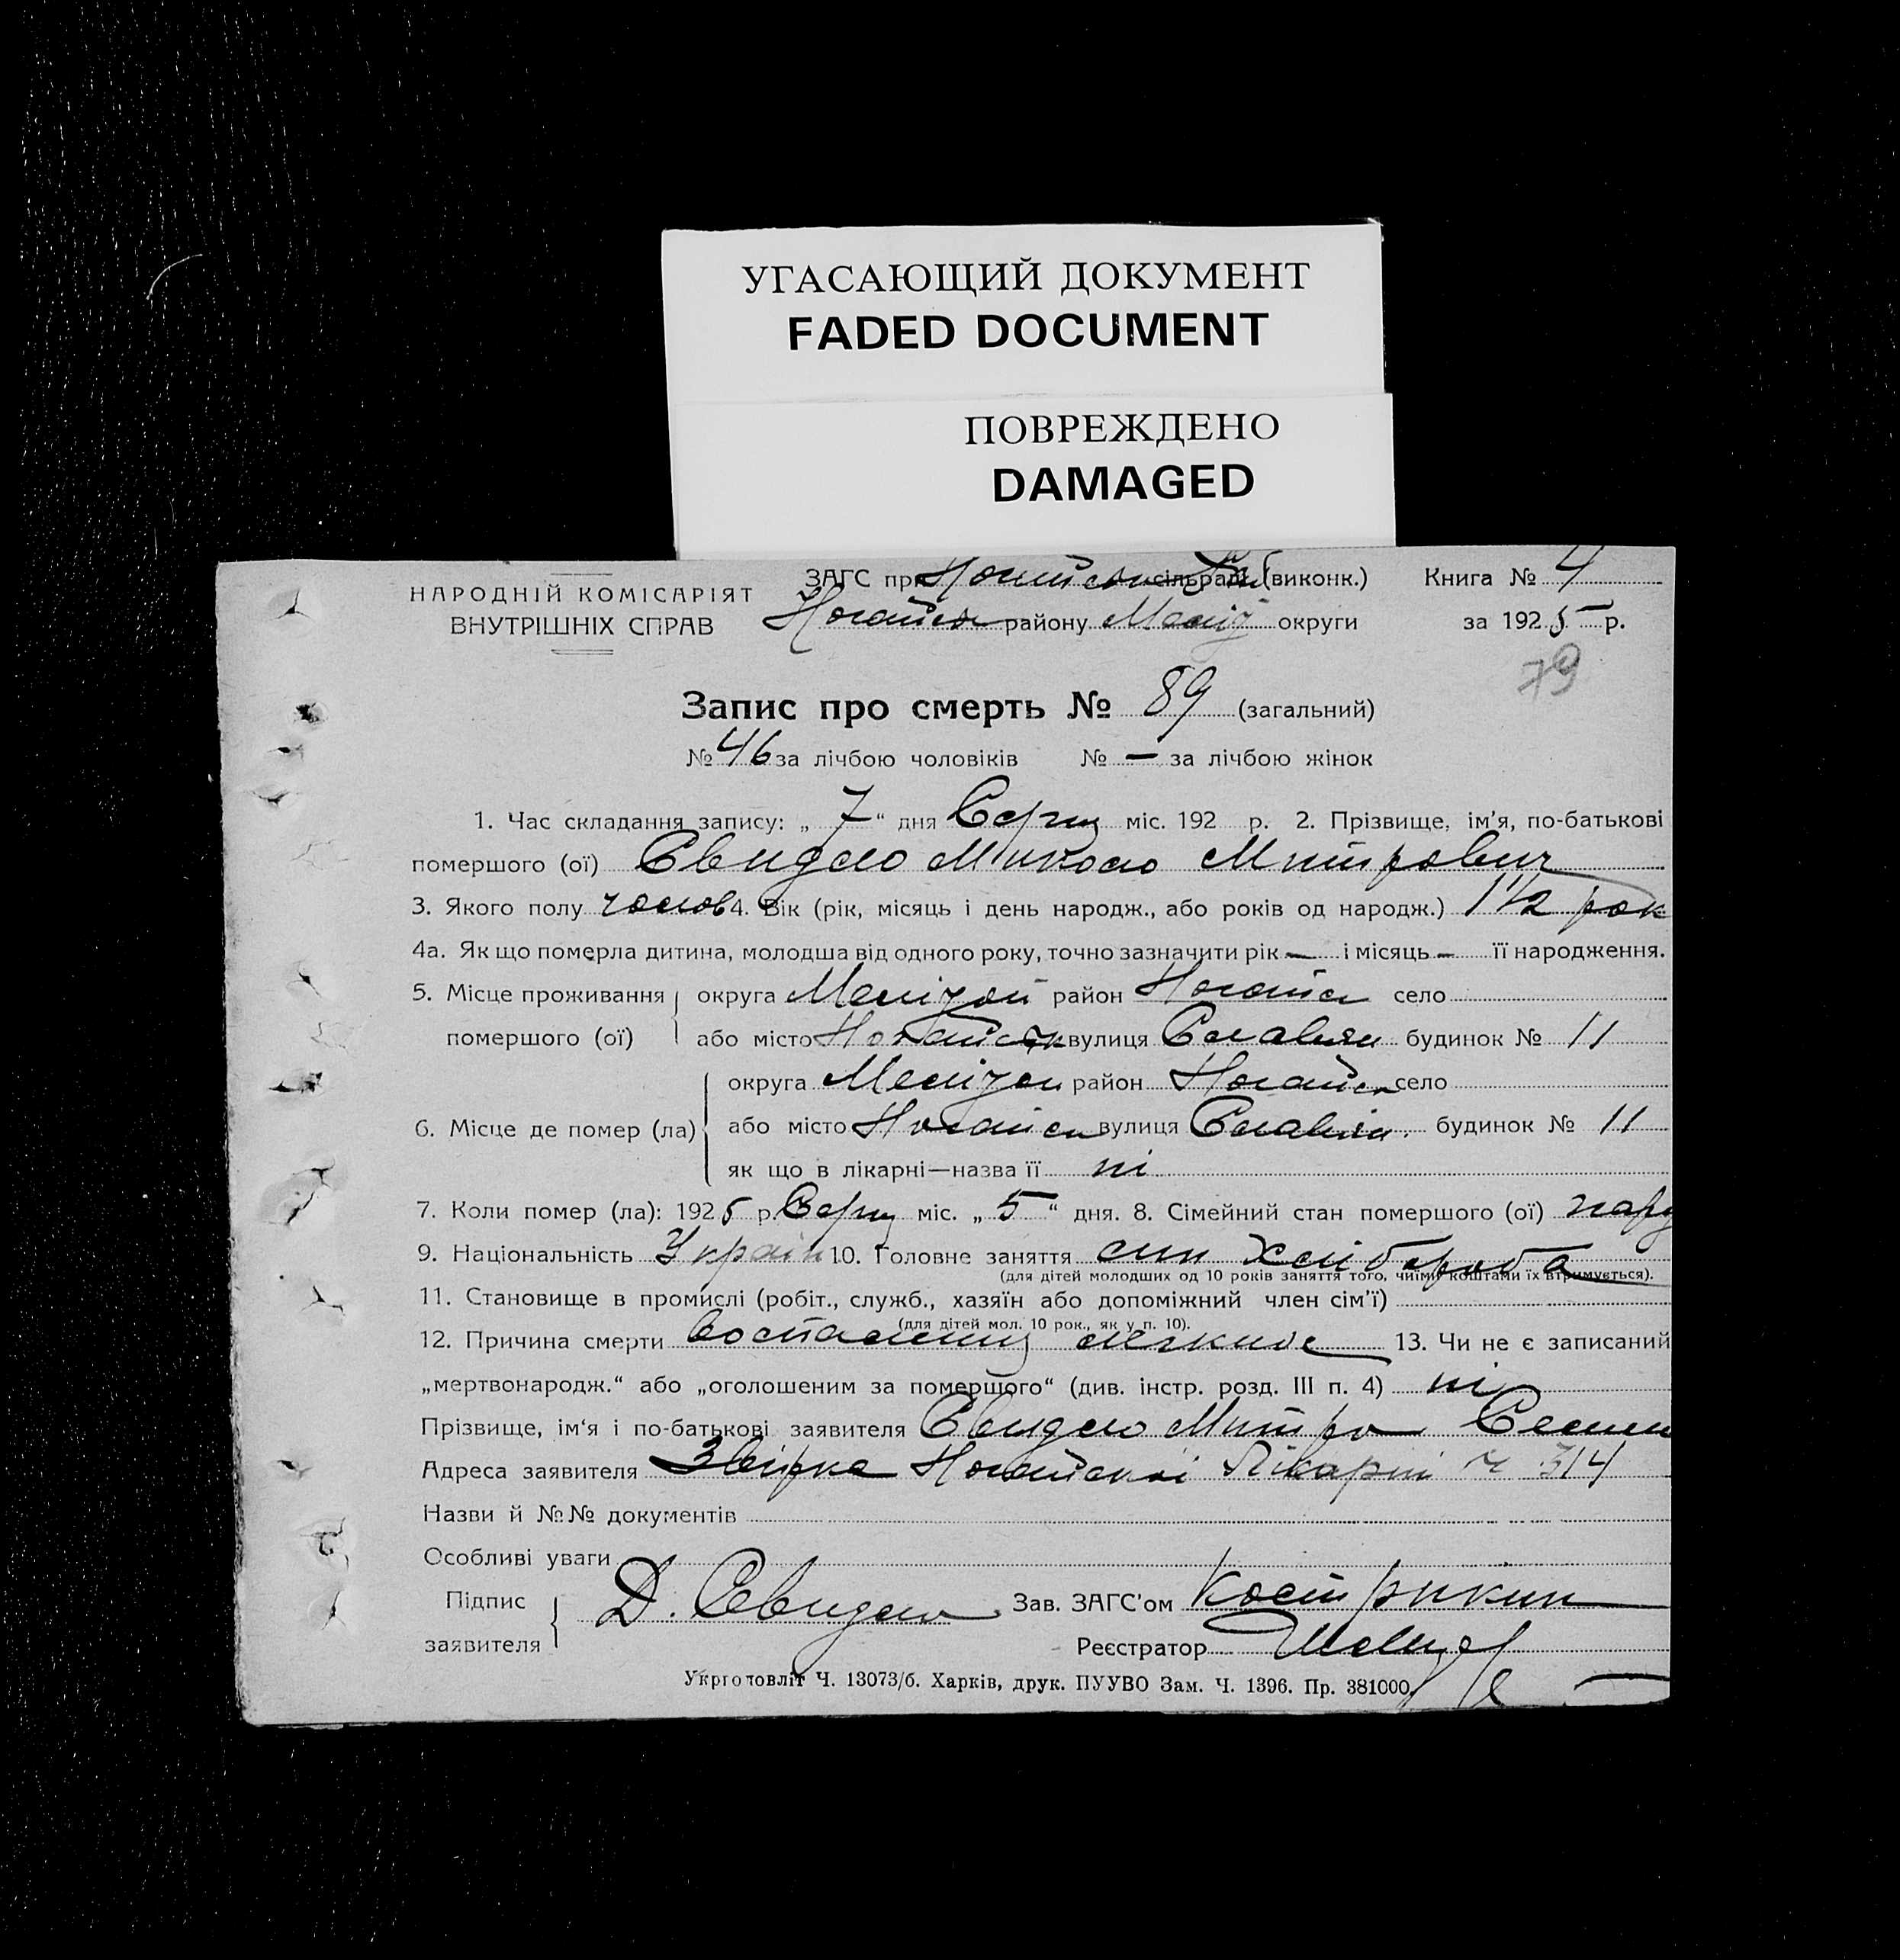 УГАСАЮЩИЙ ДОКУМЕНТ
FADED DOCUMENT
ПОВРЕЖДЕНО
DAMAGED
НАРОДНІЙ КОМІСАРІЯТ
ВНУТРІШНІХ СПРАВ
ЗАГС при сільраді (виконк.) Книга № 4
району округи за 1925 р.
79
Запис про смерть № 89 (загальний)
№ 46 за лічбою чоловіків № — за лічбою жінок
1. Час складання запису: „ 7 “ дня Серп міс. 192 р. 2. Прізвище, ім'я, по-батькові
помершого (ої) Свидло Микола Митрович
3. Якого полу чолов 4. Вік (рік, місяць і день народж., або років од народж.) 1 1/2 рок
4а. Як що померла дитина, молодша від одного року, точно зазначити рік — і місяць — її народження.
5. Місце проживання округа Меліт район Ногайск село
помершого (ої) або місто Ногайськ вулиця будинок № 11
округа район Ногайск село
6. Місце де помер (ла) або місто Ногайск вулиця будинок № 11
як що в лікарні—назва її ні
7. Коли помер (ла): 1925 р. Серп міс. „ 5 “ дня. 8. Сімейний стан помершого (ої) пару
9. Національність Україн 10. Головне заняття син хлібороба
(для дітей молодших од 10 років заняття того, чиїми коштами їх втримується).
11. Становище в промислі (робіт., служб., хазяїн або допоміжний член сім'ї)
(для дітей мол. 10 рок., як у п. 10).
12. Причина смерти легких 13. Чи не є записаний
„мертвонародж.“ або „оголошеним за помершого“ (див. інстр. розд. III п. 4) ні
Прізвище, ім'я і по-батькові заявителя Свидло Митро Семен
Адреса заявителя Ногайської Лікарні ч 314
Назви й №№ документів
Особливі уваги
Підпис
заявителя Д. Свидло Зав. ЗАГС'ом Кострикин
Реєстратор
Укрголовліт Ч. 13073/б. Харків, друк. ПУУВО Зам. Ч. 1396. Пр. 381000.